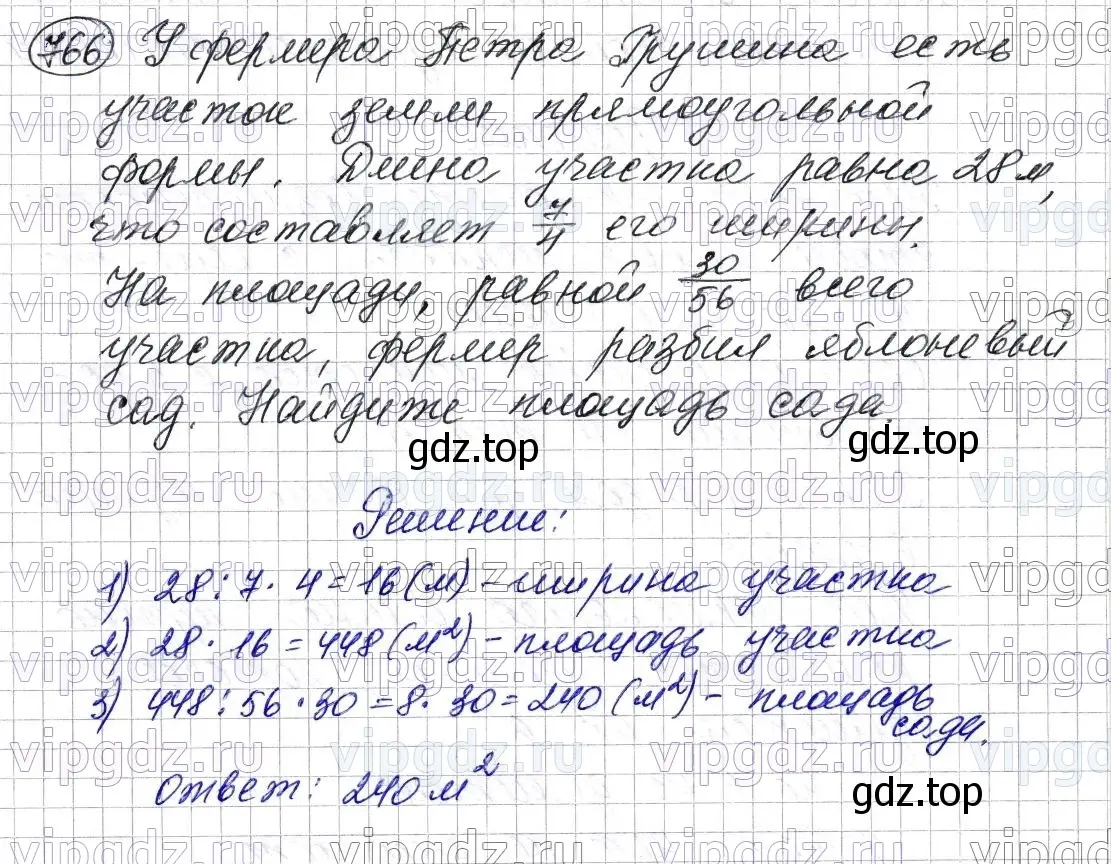 766 У фермера Петра Грушина есть
участок земли прямоугольной
формы. Длина участка равна 28 м,
что составляет 7/4 его ширины.
На площади, равной 30/56 всего
участка, фермер разбил яблоневый
сад. Найдите площадь сада.
gdz.top
gdz.top
Решение:
1) 28 : 7 · 4 = 16 (м) - ширина участка
2) 28 · 16 = 448 (м²) - площадь участка
3) 448 : 56 · 30 = 8 · 30 = 240 (м²) - площадь
сада.
Ответ: 240 м²
gdz.top
vipgdz.ru